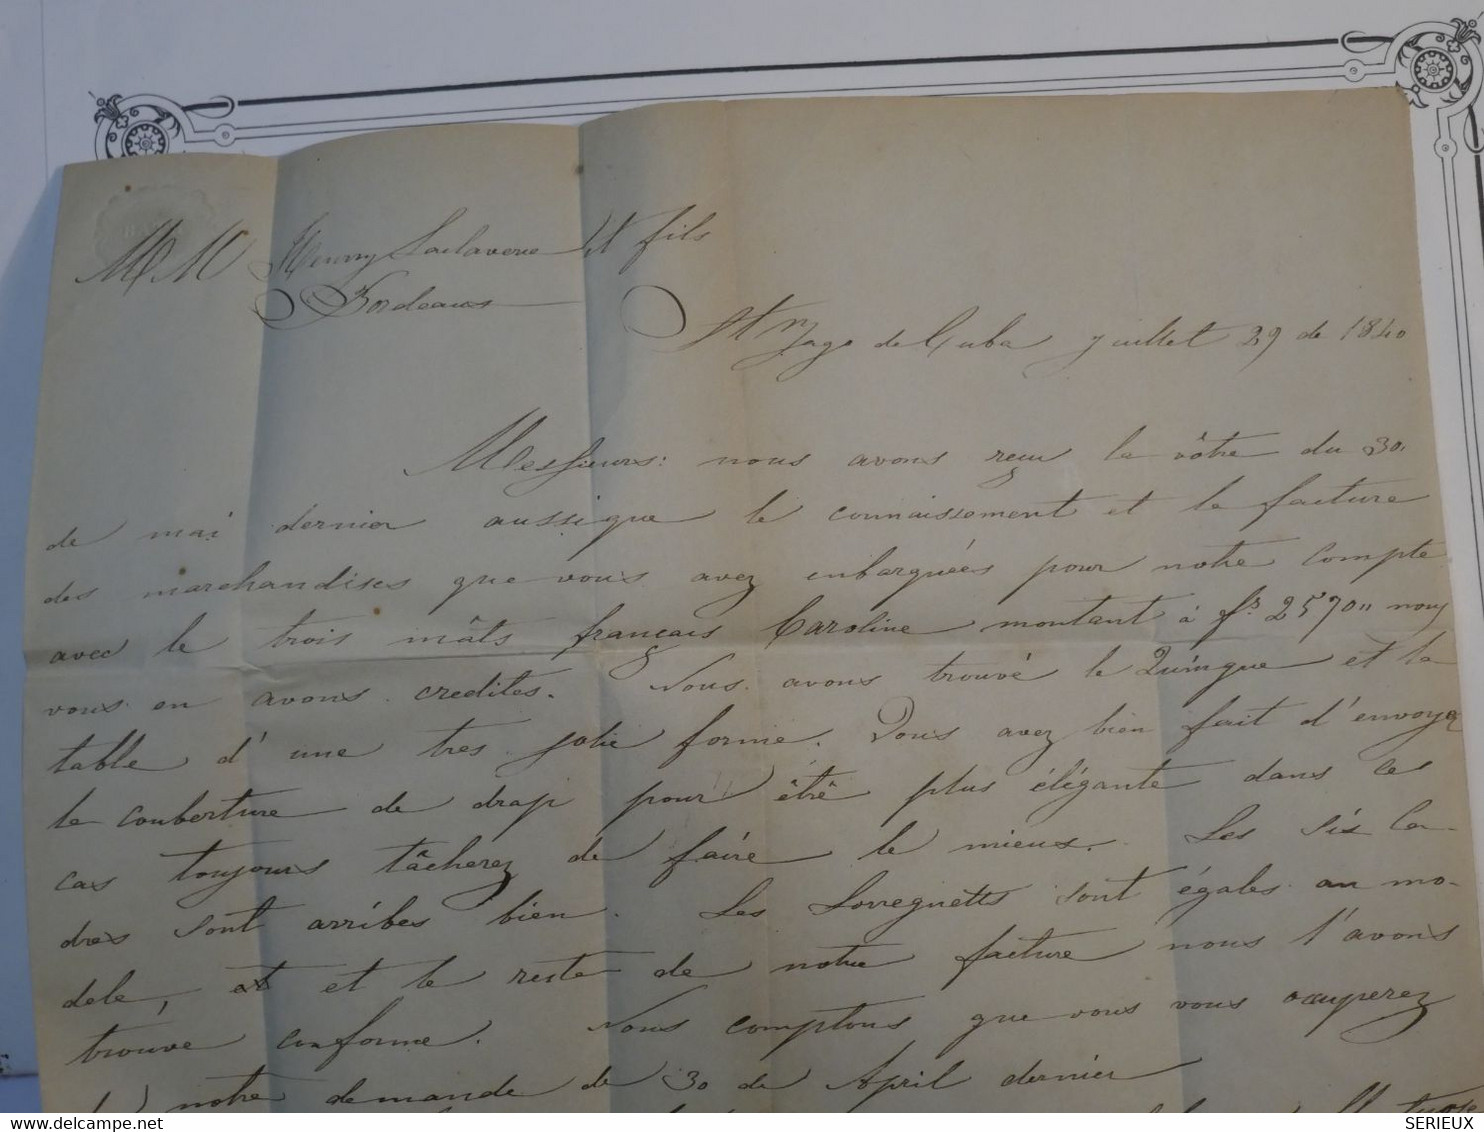 MM Henry Laclaverie et fils
Bordeaux
St Yago de Cuba juillet 29 de 1840
Messieurs: nous avons reçu la vôtre du 30.
de mai dernier aussi que le connaissement et la facture
des marchandises que vous avez enbarquées pour notre compte
avec le trois mâts français Caroline montant à frs 2570,, nous
vous en avons credites. Nous avons trouvé le Quinque et la
table d'une tres jolie forme. Vous avez bien fait d'envoyer
le couberture de drap pour être plus élégante dans ce
cas toujours tâcherez de faire le mieux. Les sis ca-
dres sont arribes bien. Les Lorregnetts sont égales au mo-
dele, et et le reste de notre facture nous l'avons
trouvé conforme. Nous comptons que vous vous occuperez
notre demande de 30 de April dernier
SERIEUX